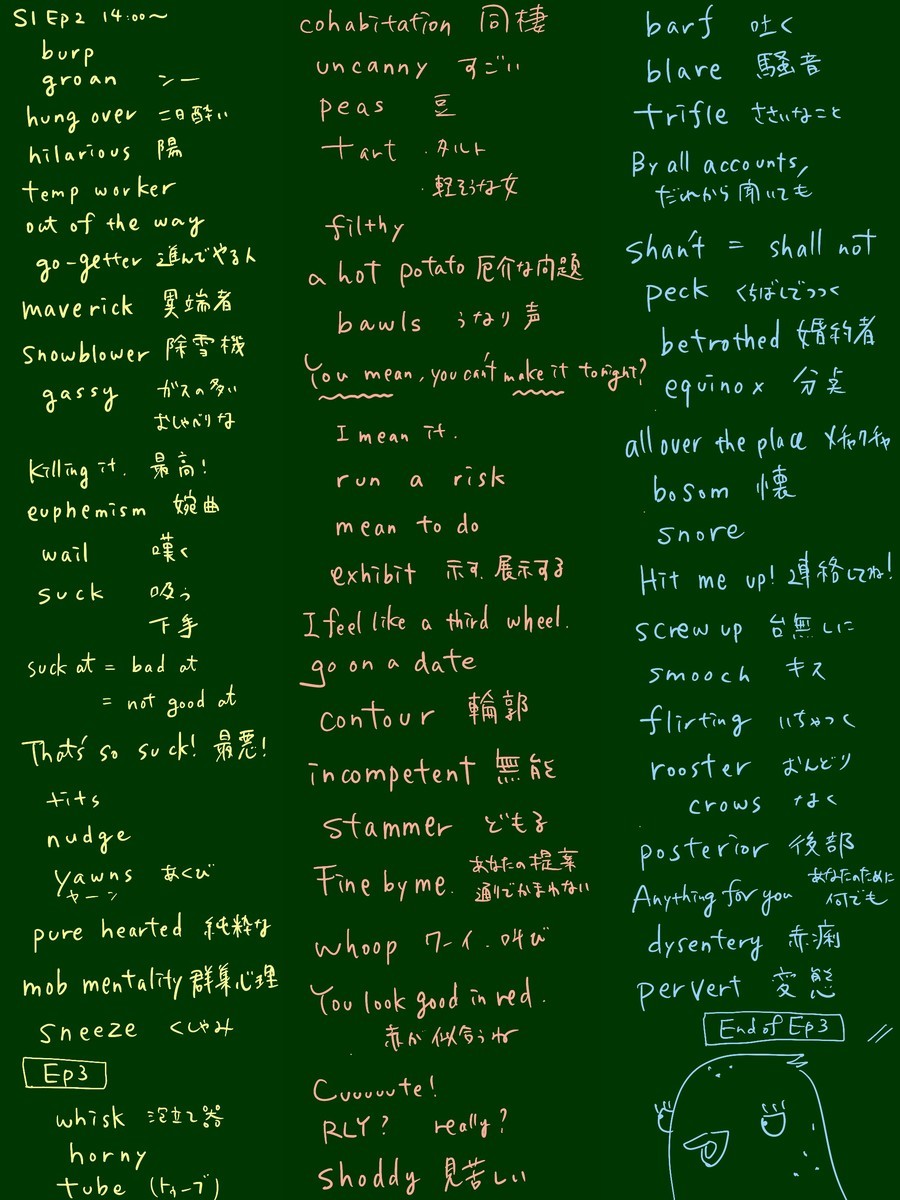 S1 Ep2 14:00〜
burp
groan シー
hung over 二日酔い
hilarious 陽
temp worker
out of the way
go-getter 進んでやる人
maverick 異端者
Snowblower 除雪機
gassy ガスの多い
おしゃべりな
Killing it. 最高!
euphemism 婉曲
wail 嘆く
suck 吸う
下手
suck at = bad at
= not good at
That's so suck! 最悪!
tits
nudge
yawns あくび
ヤーン
pure hearted 純粋な
mob mentality 群集心理
sneeze くしゃみ
Ep3
whisk 泡立て器
horny
tube (トゥーブ)
cohabitation 同棲
uncanny すごい
peas 豆
tart ・タルト
・軽そうな女
filthy
a hot potato 厄介な問題
bawls うなり声
You mean, you can't make it tonight?
I mean it.
run a risk
mean to do
exhibit 示す、展示する
I feel like a third wheel.
go on a date
contour 輪郭
incompetent 無能
stammer どもる
Fine by me. あなたの提案
通りでかまわない
whoop ワーイ、叫び
You look good in red.
赤が似合うね
Cuuuuute!
RLY? really?
shoddy 見苦しい
barf 吐く
blare 騒音
trifle ささいなこと
By all accounts,
だれから聞いても
shan't = shall not
peck くちばしでつつく
betrothed 婚約者
equinox 分点
all over the place メチャクチャ
bosom 懐
snore
Hit me up! 連絡してね!
screw up 台無しに
smooch キス
flirting いちゃつく
rooster おんどり
crows なく
posterior 後部
Anything for you あなたのために
何でも
dysentery 赤痢
pervert 変態
End of Ep3